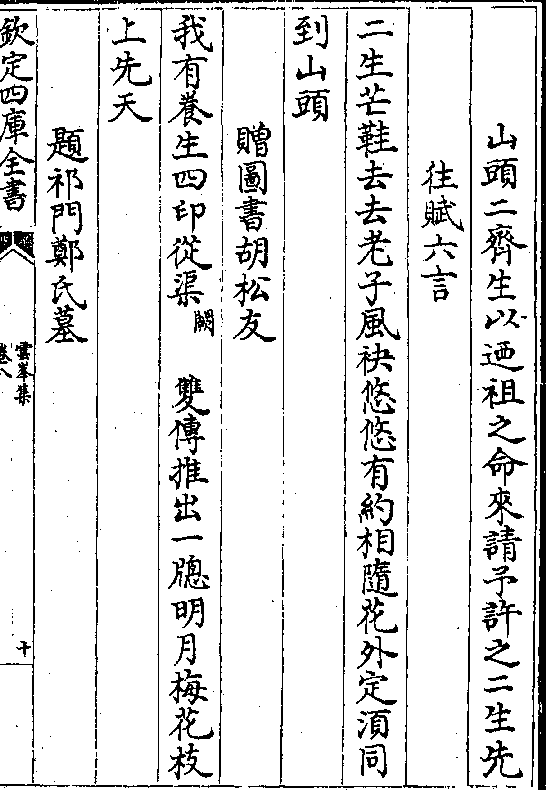 山頭二齊生以迺祖之命來請予許之二生先
往賦六言
二生芒鞋去去老子風袂悠悠有約相隨花外定須同
到山頭
贈圖書胡松友
我有養生四印從渠闕 雙傳推出一牕明月梅花枝
上先天
題祁門鄭氏墓
欽定四庫全書
雲峯集
卷八
十